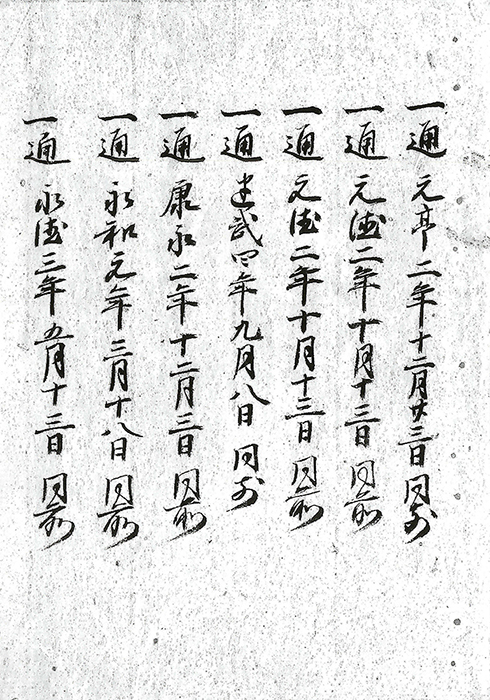 一通 元亨二年十二月廿三日 同前
一通 元徳二年十月十三日 同前
一通 元徳二年十月十三日 同前
一通 建武四年九月八日 同前
一通 康永二年十二月三日 同前
一通 永和元年三月十八日 同前
一通 永徳三年五月十三日 同前